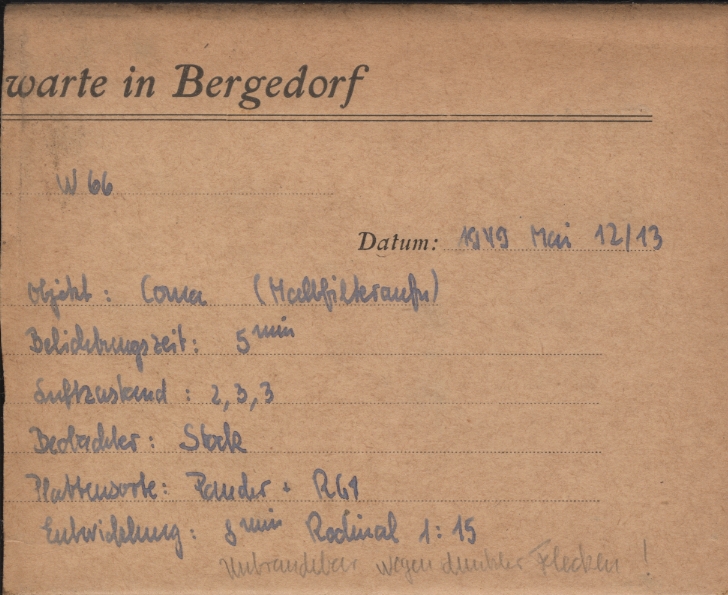 warte in Bergedorf
W 66
Datum: 1949 Mai 12/13
Objekt : Coma (Halbfilteraufn)
Belichtungszeit: 5 min
Luftzustand : 2, 3, 3
Beobachter : Stock
Plattensorte: + RG1
Entwicklung: 8 min Rodinal 1:15
Unbrauchbar wegen dunkler Flecken !